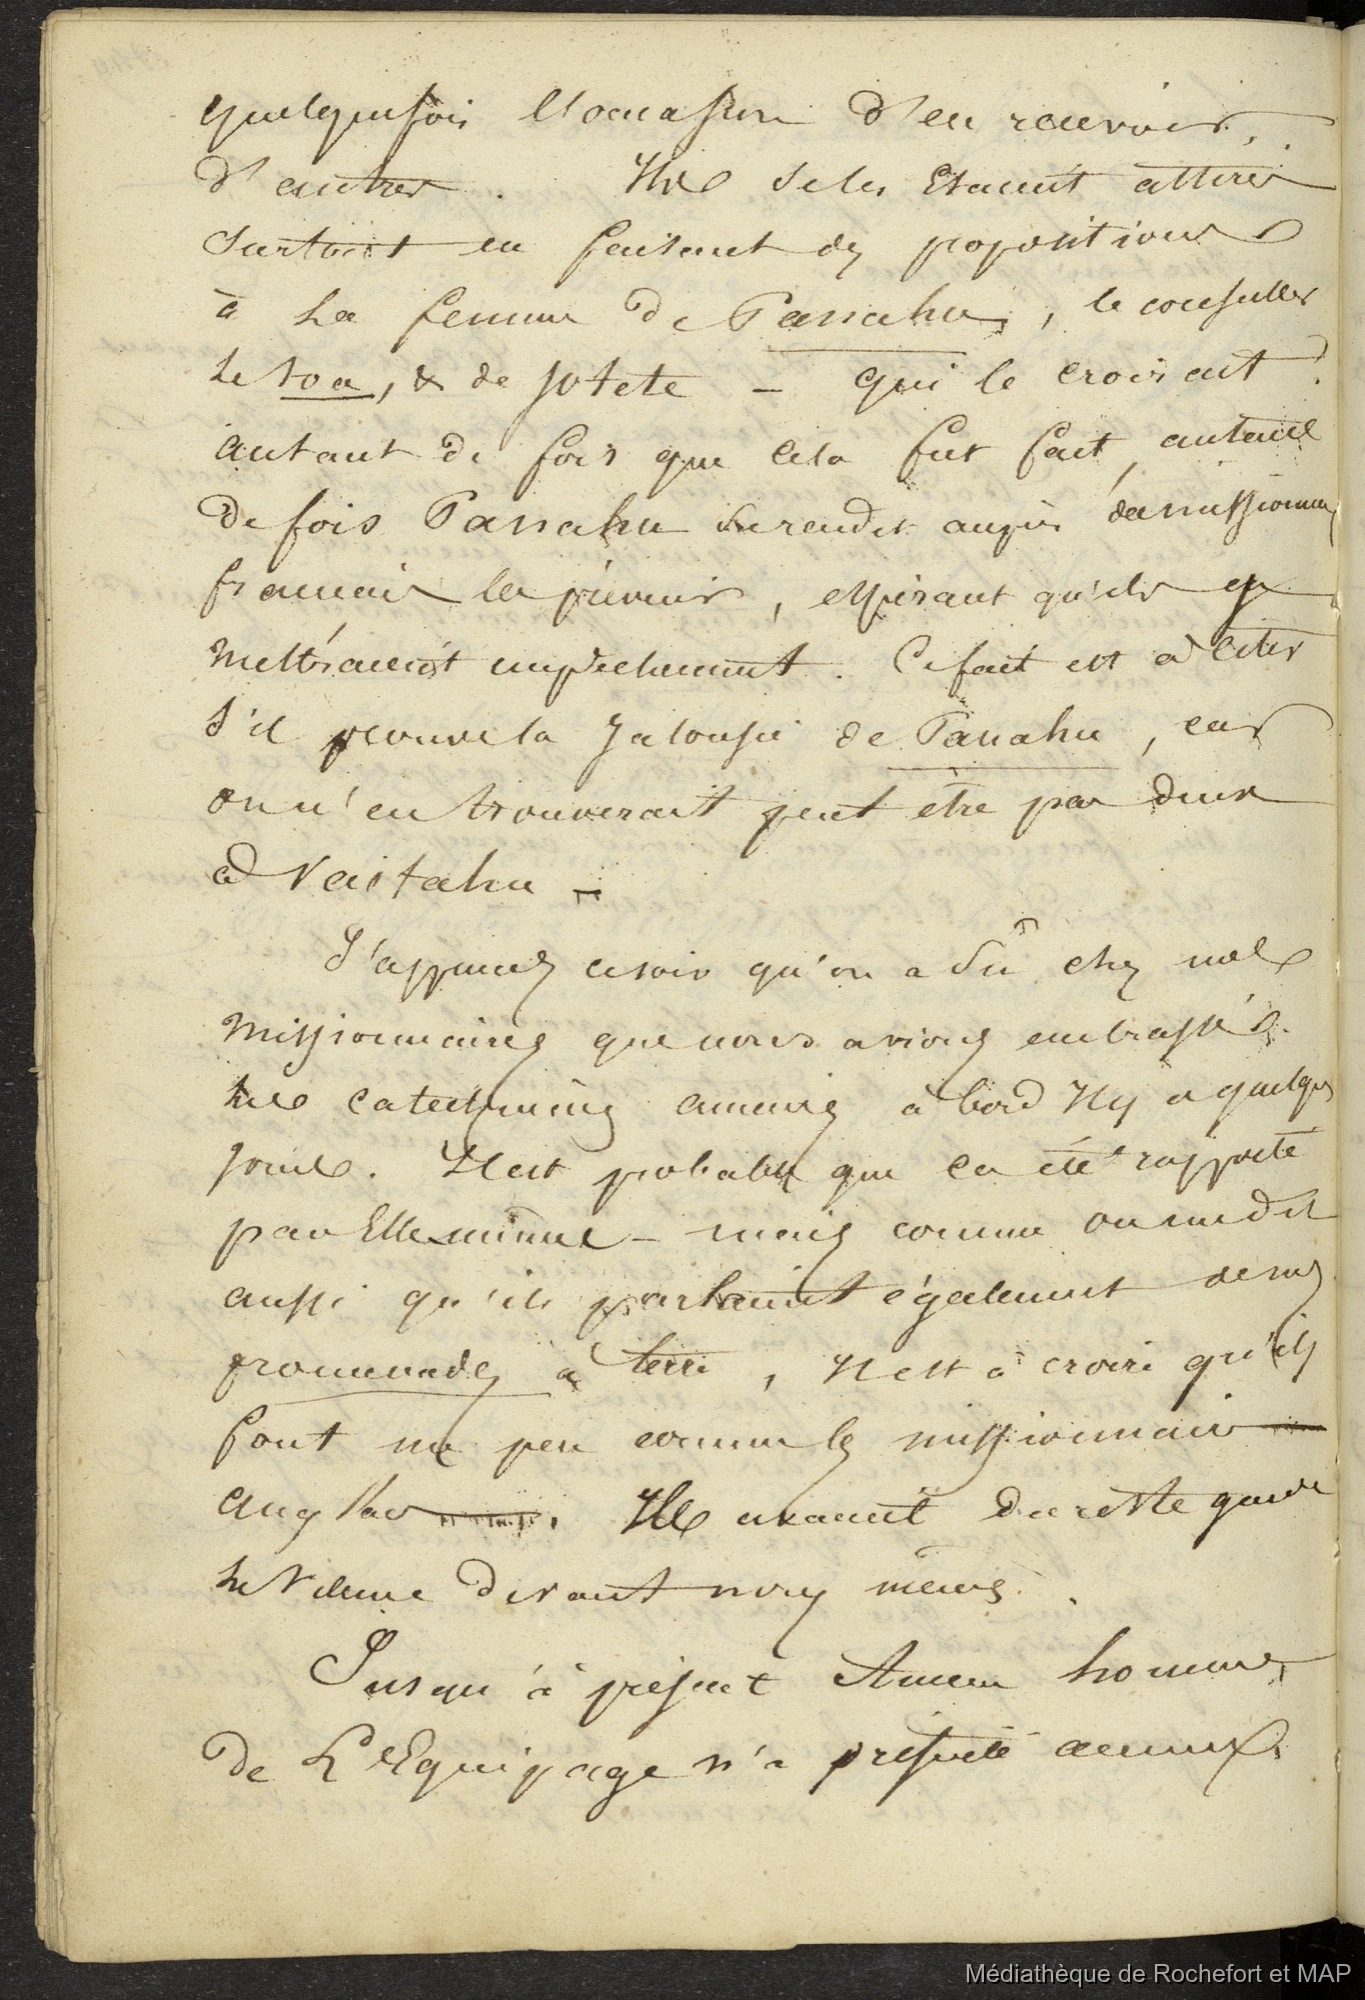 quelquefois l'occasion d'en recevoir
d'autres. Ils se les étaient attirés
surtout en faisant des propositions
à la femme de Panahu, le conseiller
le toa, & de Jotete - qui le croirait
autant de fois que cela fut fait, autant
de fois Panahu se rendit auprès des missionnaires
français les prévenir, espérant qu'ils y
mettraient empêchement. Ce fait est à citer
s'il prouve la jalousie de Panahu, car
on n'en trouverait peut être pas deux
à Vaitahu -
J'apprends ce soir qu'on a su chez nos
missionnaires que nous avions embrassé
les catechumènes amenés à bord Il y a quelques
jours. Il est probable que ça été rapporté
par Elle même - mais comme on me dit
aussi qu'ils parlaient également de nos
promenades à terre, Il est à croire qu'ils
font un peu comme les missionnaires
anglais. Ils avaient du reste gardé
le silence devant nous mêmes.
Jusqu'à présent Aucun homme
de L'Equipage n'a présenté aucune
Médiathèque de Rochefort et MAP